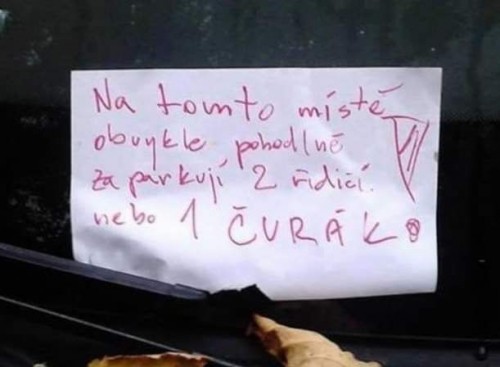 Na tomto místě
obvykle pohodlně
zaparkují 2 řidiči.
nebo 1 ČURÁK!